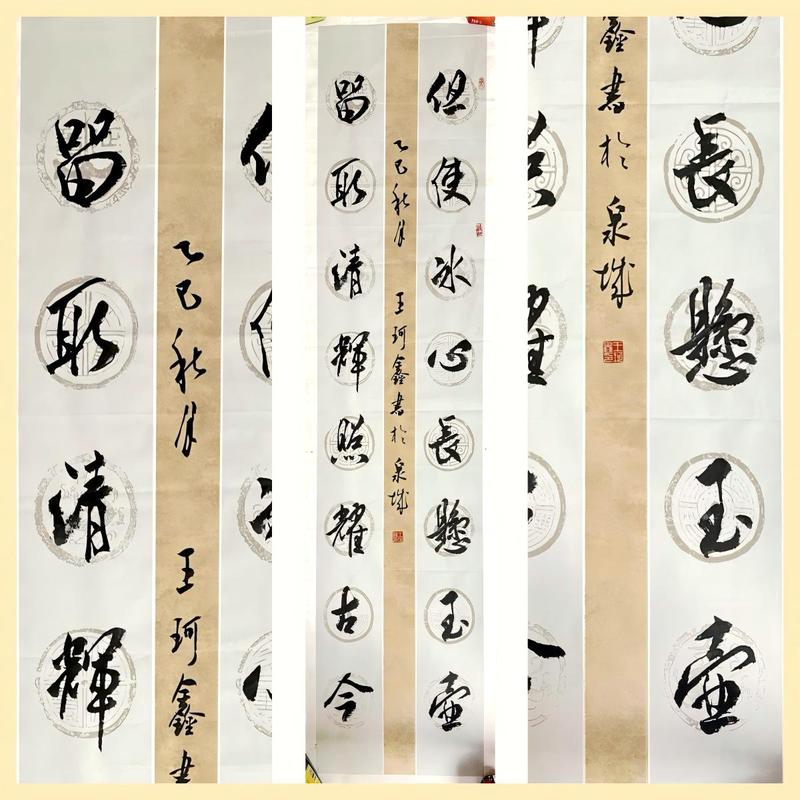 乙巳秋月 王珂鑫書
留取清輝
但使冰心長懸玉壺
乙巳秋月 王珂鑫書於泉城
留取清輝照耀古今
長懸玉壺
鑫書於泉城